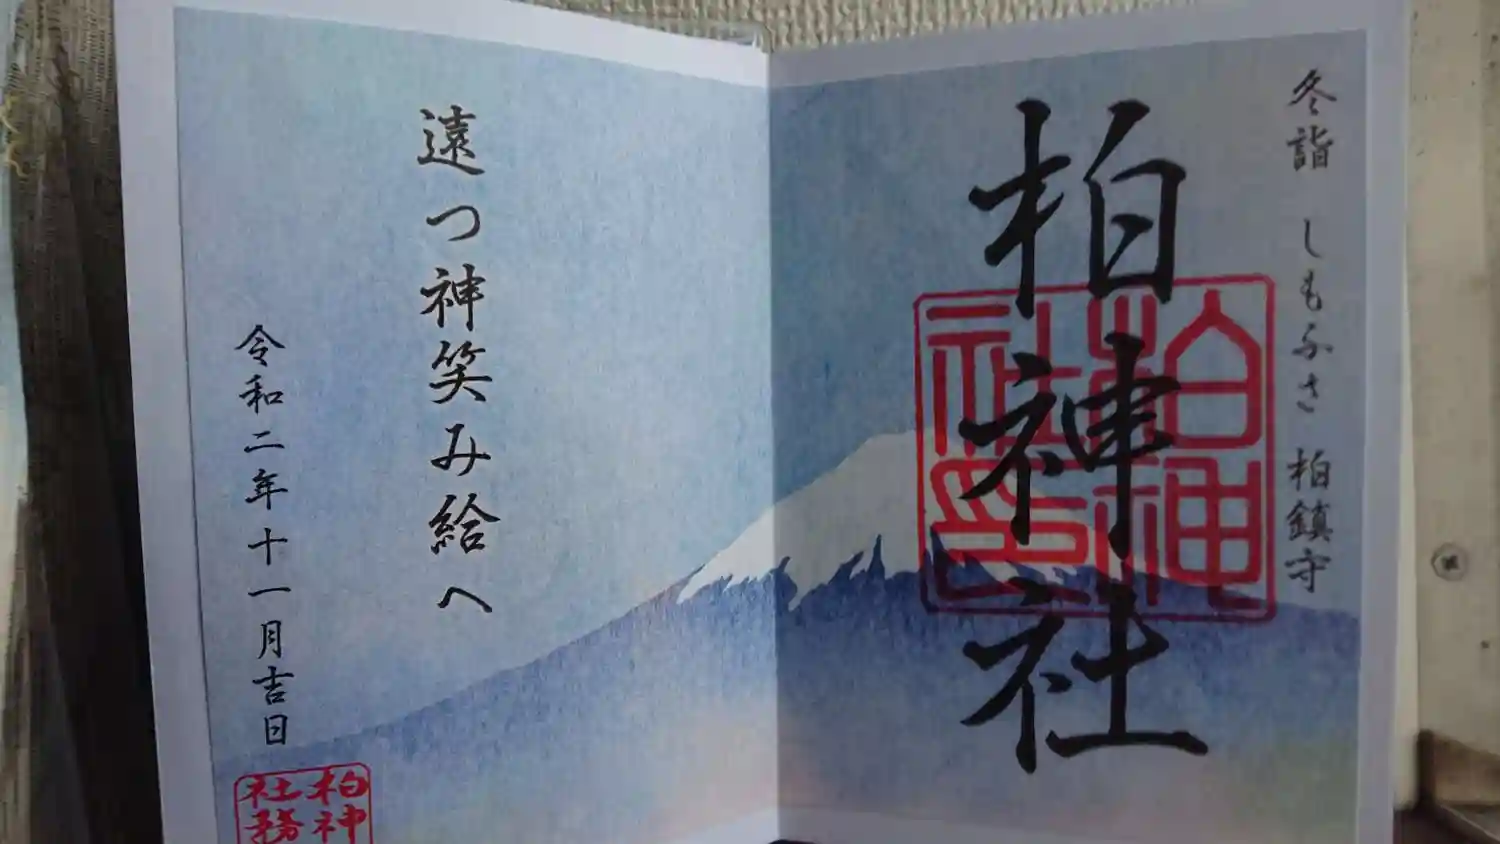 冬詣 しもふさ 柏鎮守
柏神社
柏神社印
遠つ神笑み給へ
令和二年十一月吉日
柏神
社務